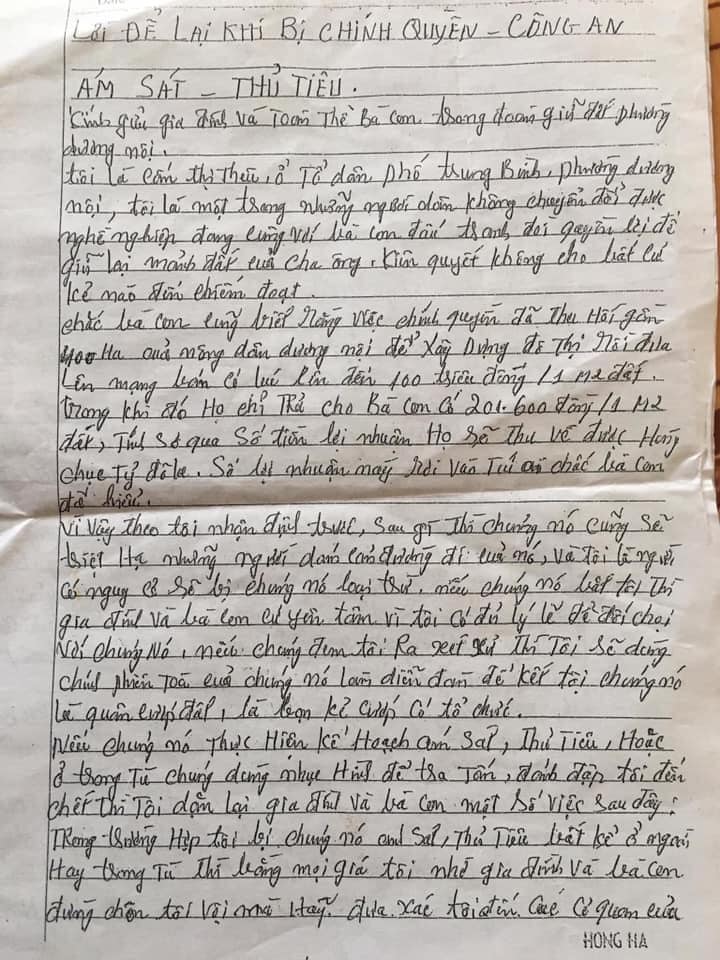 LỜI ĐỂ LẠI KHI BỊ CHÍNH QUYỀN - CÔNG AN
ÁM SÁT - THỦ TIÊU.
Kính gửi gia đình và Toàn Thể Bà con trong đoàn giữ đất phường
dương nội.
tôi là Cấn thị Thêu, ở Tổ dân phố trung Bình, phường dương
nội, tôi là một trong những người dân không chuyển đổi được
nghề nghiệp đang cùng với bà con đấu tranh đòi quyền lợi để
giữ lại mảnh đất của cha ông, kiên quyết không cho bất cứ
kẻ nào đến chiếm đoạt.
chắc bà con cũng biết rằng việc chính quyền đã Thu Hồi gần
400 Ha của nông dân dương nội để Xây Dựng đô Thị rồi đưa
Lên mạng bán có lúc lên đến 100 triệu đồng /1 M2 đất.
trong khi đó Họ chỉ TRả cho Bà con có 201.600 đồng /1 M2
đất, Tính sơ qua Số tiền lợi nhuận Họ sẽ Thu về được Hàng
chục Tỷ đôla. Số lợi nhuận này rơi vào Túi ai chắc bà con
dễ hiểu.
Vì vậy theo tôi nhận định trước, sau gì Thì chúng nó cũng sẽ
triệt Hạ những người dám cản đường đi của nó, và Tôi là người
có nguy cơ sẽ bị chúng nó loại trừ. nếu chúng nó bắt tôi Thì
gia đình và bà con cứ yên tâm vì tôi có đủ lý lẽ để đối chọi
Với chúng Nó, nếu chúng đem tôi Ra xét xử Thì Tôi sẽ dùng
chính phiên Toà của chúng nó làm diễn đàn để kết tội chúng nó
là quân cướp đất, là bọn kẻ cướp có tổ chức.
Nếu chúng nó Thực Hiện kế Hoạch ám Sát, Thủ Tiêu, Hoặc
ở trong Tù chúng dùng nhục Hình để tra Tấn, đánh đập tôi đến
chết thì Tôi dặn lại gia đình và bà con một số việc sau đây:
TRong trường Hợp tôi bị chúng nó ám Sát, Thủ Tiêu bất kể ở ngoài
Hay trong Tù Thì bằng mọi giá tôi nhờ gia đình Và bà con
đừng chôn tôi Vội mà Hãy đưa xác tôi đến Các Cơ quan của
HONG HA